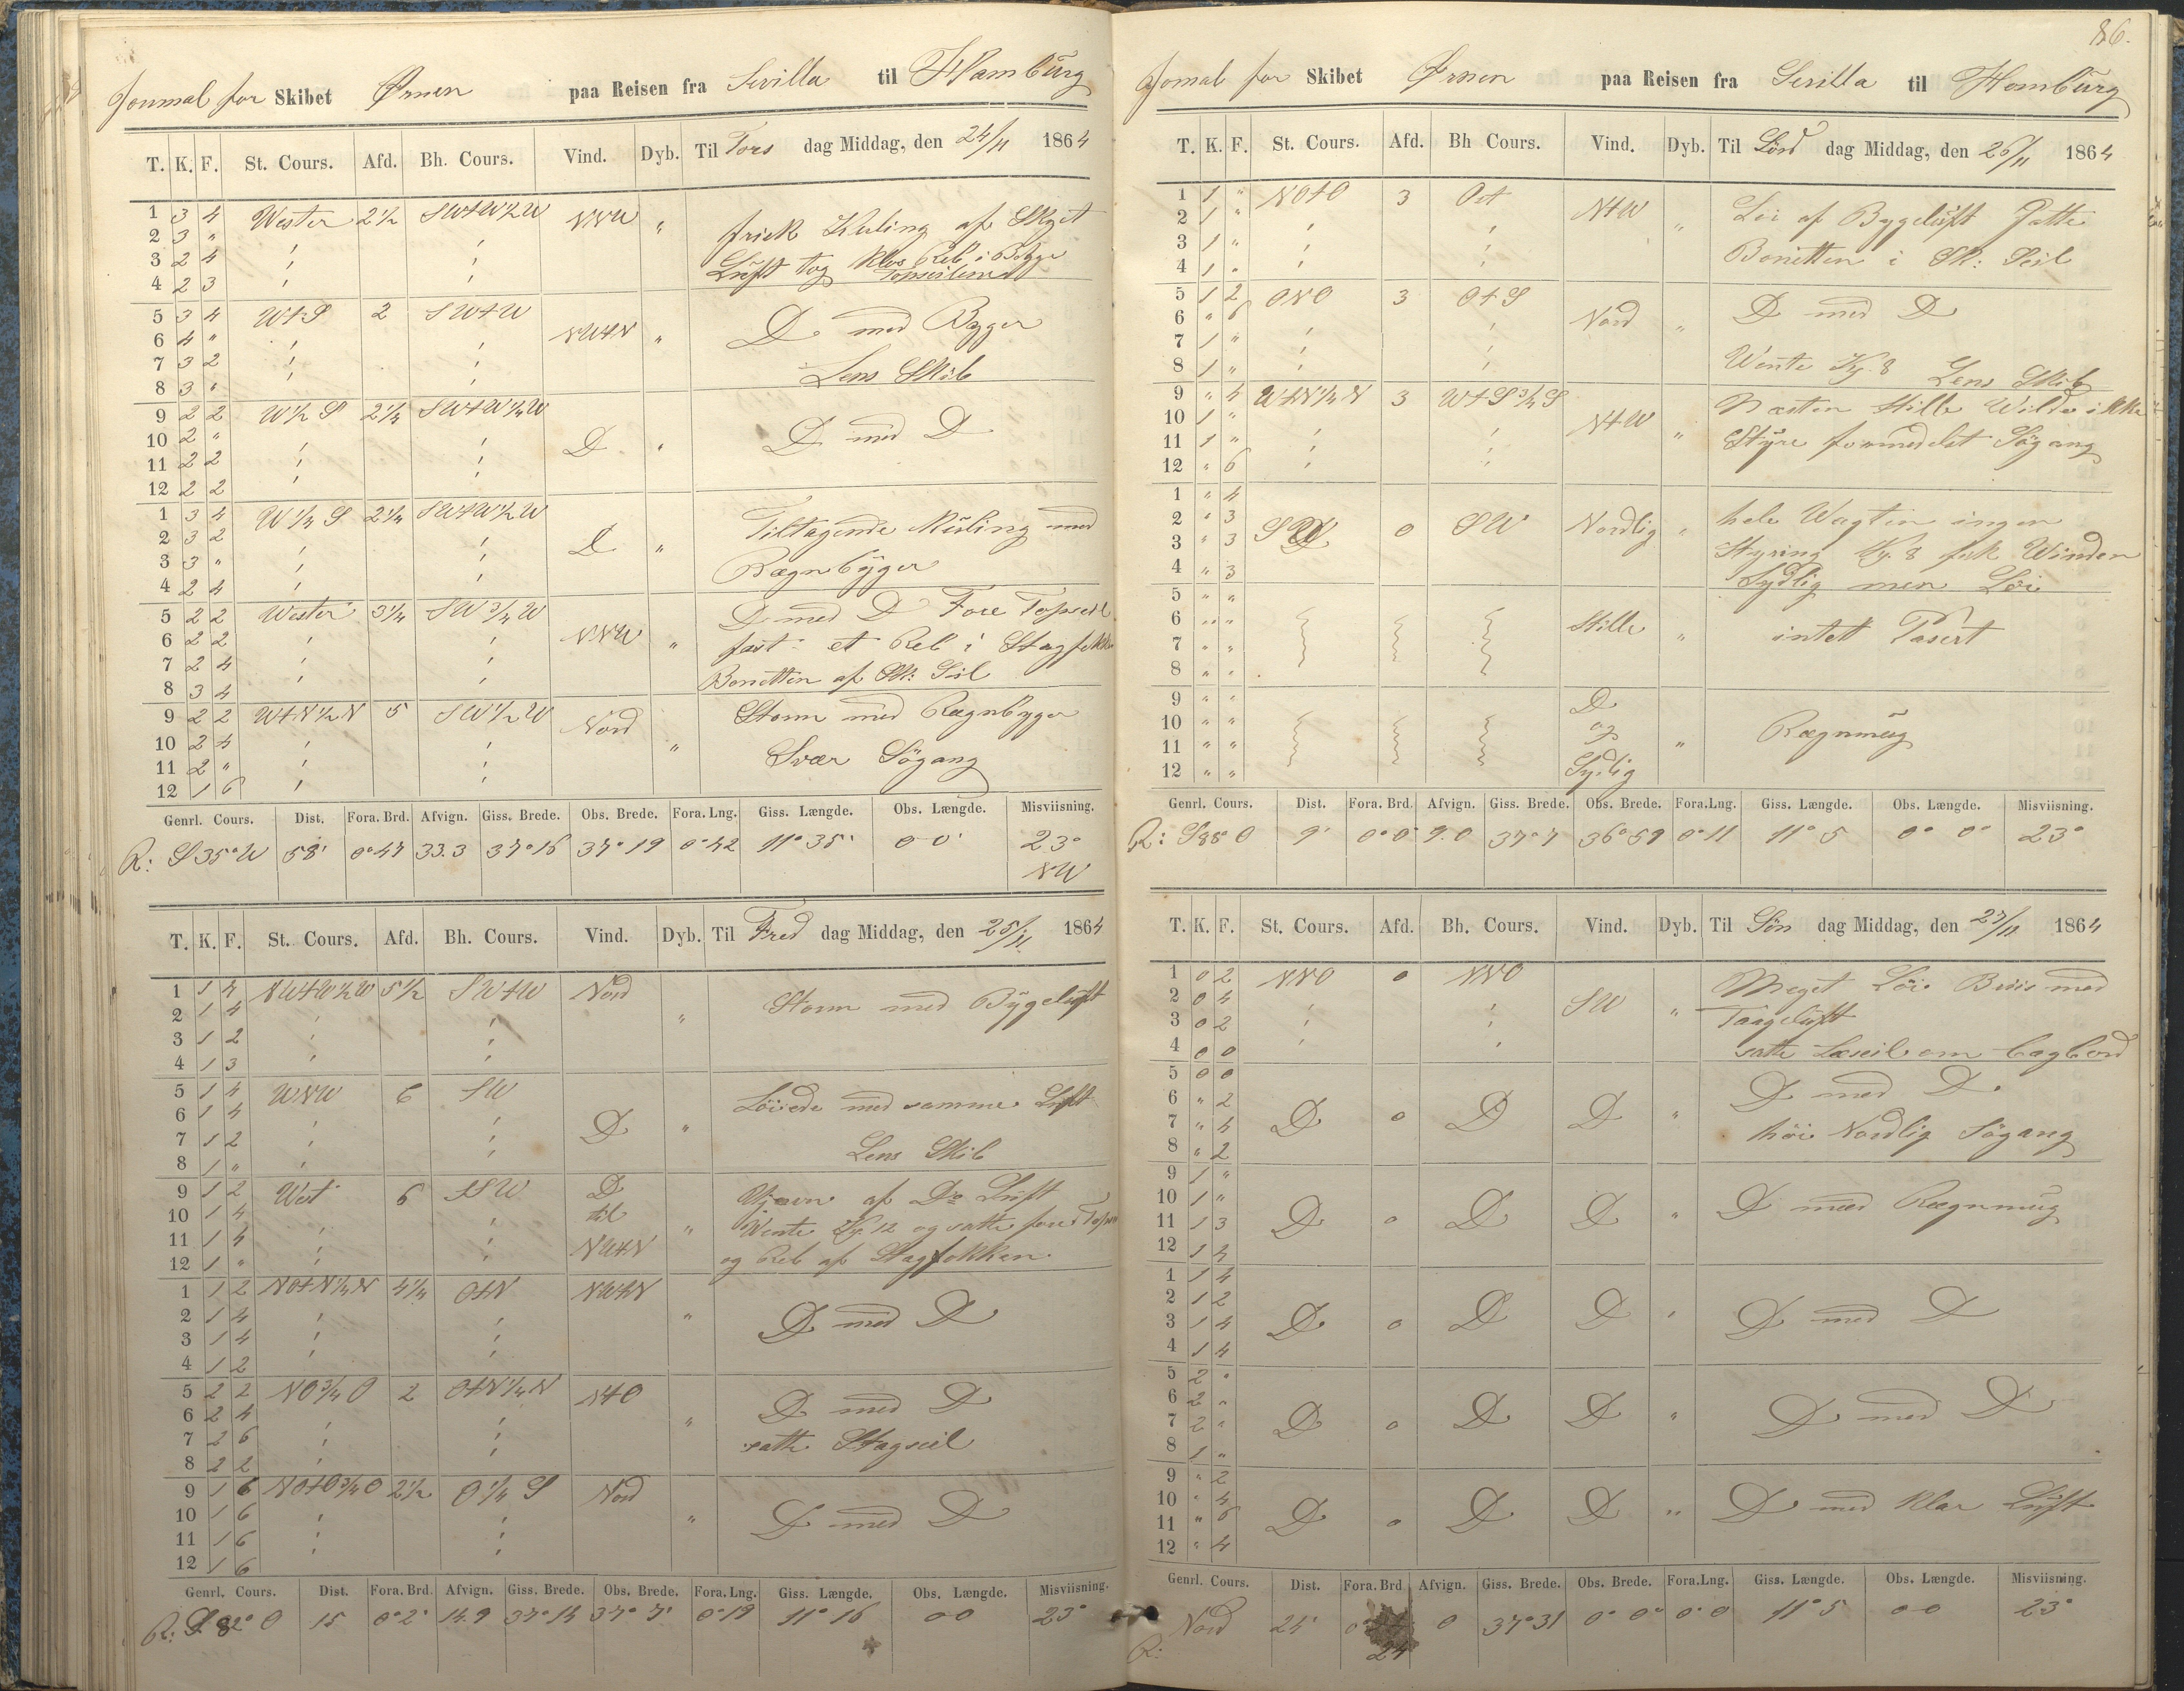 Journal for Skibet Ørnen paa Reisen fra Sevilla til Hamburg
T. K. F. St. Cours. Afd. Bh. Cours. Vind. Dyb. Til Tors dag Middag, den 24/11 1864
1 3 4 Wester 2 1/2 SWtW 1/2 W NNW " frisk Kuling af Skyet
2 3 "
3 2 4 Luft tog Klos Reb i Begge
4 2 3 Topseilene
5 3 4 WtS 2 SWtW NWtN " D med Byger
6 4 "
7 3 2
8 3 " Lens Skib
9 2 2 W 1/2 S 2 1/4 SWtW 1/4 W D " D med D
10 2 "
11 2 2
12 2 2
1 3 4 W 1/4 S 2 1/4 SWtW 1/2 W D " Tiltagende Kuling med
2 3 2
3 3 " Rægnbyger
4 2 4
5 2 2 Wester 3 1/4 SW 3/4 W NNW " D med D Fore Topseil
6 2 2 fast et Reb i Stagfokk
7 2 4
8 3 4 Bonetten af Sk: Seil
9 2 2 WtN 1/2 N 5 SW 1/2 W Nord " Storm med Rægnbyger
10 2 4
11 2 " Svær Sögang
12 1 6
Genrl. Cours. Dist. Fora. Brd. Afvign. Giss. Brede. Obs. Brede. Fora. Lng. Giss. Længde. Obs. Længde. Misviisning.
R: S 35° W 58' 0° 47 33.3 37° 16 37° 19 0° 42 11° 35' 0 0' 23° NW
T. K. F. St. Cours. Afd. Bh. Cours. Vind. Dyb. Til Fred dag Middag, den 25/11 1864
1 1 4 NWtW 1/2 W 5 1/2 SWtW Nord " Storm med Bygeluft
2 1 4
3 1 2
4 1 3
5 1 4 WNW 6 SW D " Löiede med samme Luft
6 1 4
7 1 2
8 1 " Lens Skib
9 1 2 West 6 SSW D til NWtN " Ujævn af Do Luft
10 1 4 Wente Kg. 12 og satte fore Tops
11 1 4
12 1 " og Reb af Stagfokken
1 1 2 NOtN 1/4 N 4 1/4 OtN NWtN " D med D
2 1 4
3 1 4
4 1 2
5 2 2 NO 3/4 O 2 OtN 1/4 N NtO " D med D
6 2 4
7 2 6 satte Stagseil
8 2 2
9 1 6 NOtO 3/4 O 2 1/2 O 1/4 S Nord " D med D
10 1 6
11 1 6
12 1 6
Genrl. Cours. Dist. Fora. Brd. Afvign. Giss. Brede. Obs. Brede. Fora. Lng. Giss. Længde. Obs. Længde. Misviisning.
R: S 82° O 15 0° 2' 14.9 37° 14 37° 7' 0° 19 11° 16 0 0 23°
86.
Jornal for Skibet Ørnen paa Reisen fra Sevilla til Hamburg
T. K. F. St. Cours. Afd. Bh Cours. Vind. Dyb. Til Lörd dag Middag, den 26/11 1864
1 1 " NOtO 3 Ost NtW " Löi af Bygeluft Satte
2 1 "
3 1 " Bonetten i Sk: Seil
4 1 "
5 1 2 ONO 3 OtS Nord " D med D
6 " 6
7 1 "
8 1 " Wente Kg. 8 Lens Skib
9 " 4 WtN 1/4 N 3 WtS 3/4 S NtW " Næsten Stille Wilde ikke
10 1 "
11 1 " Styre formedelst Sögang
12 " 6
1 " 4 SW 0 SW Nordlig " hele Wagten ingen
2 " 3
3 " 3 Styring Kg. 8 fik Winden
4 " 3 Sydlig men Löi
5 " "
6 " " Stille " intet Pasert
7 " "
8 " "
9 " " D og Sydlig " Rægnmug
10 " "
11 " "
12 " "
Genrl. Cours. Dist. Fora. Brd. Afvign. Giss. Brede. Obs. Brede. Fora. Lng. Giss. Længde. Obs. Længde. Misviisning.
R: S 88° O 9' 0° 0' 9.0 37° 7 36° 59 0° 11 11° 5 0° 0° 23°
T. K. F. St. Cours. Afd. Bh. Cours. Vind. Dyb. Til Sön dag Middag, den 27/11 1864
1 0 2 NNO 0 NNO SW " Meget Löi Bris med
2 0 4
3 0 2 Taageluft
4 0 0 satte Læseil om Bagbord
5 0 0 D 0 D D " D med D
6 " 2
7 " 4 höi Nordlig Sögang
8 " 2
9 1 " D 0 D D " D med Rægnmug
10 1 "
11 1 3
12 1 4
1 1 4 D 0 D D " D med D
2 1 2
3 1 4
4 1 4
5 2 " D 0 D D " D med D
6 2 "
7 2 "
8 1 "
9 " 2 D 0 D D " D med Klar Luft
10 " 4
11 " 6
12 " 4
Genrl. Cours. Dist. Fora. Brd Afvign. Giss. Brede. Obs. Brede. Fora. Lng. Giss. Længde. Obs. Længde. Misviisning.
R: Nord 24' 0° 24 0 37° 31 0° 0° 0° 0 11° 5 0 0 23°